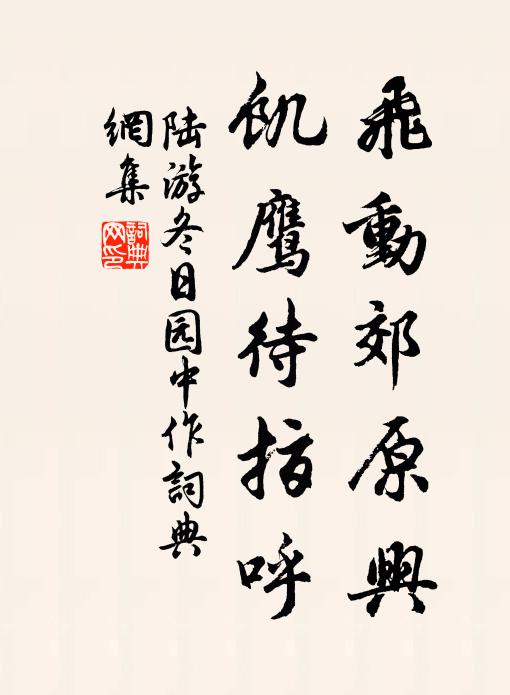 飛動郊原興
飢鹰待指呼
陆游冬日园中作詞典
網集
詞典
网印